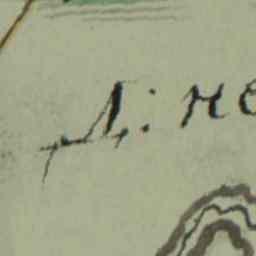 Д: не